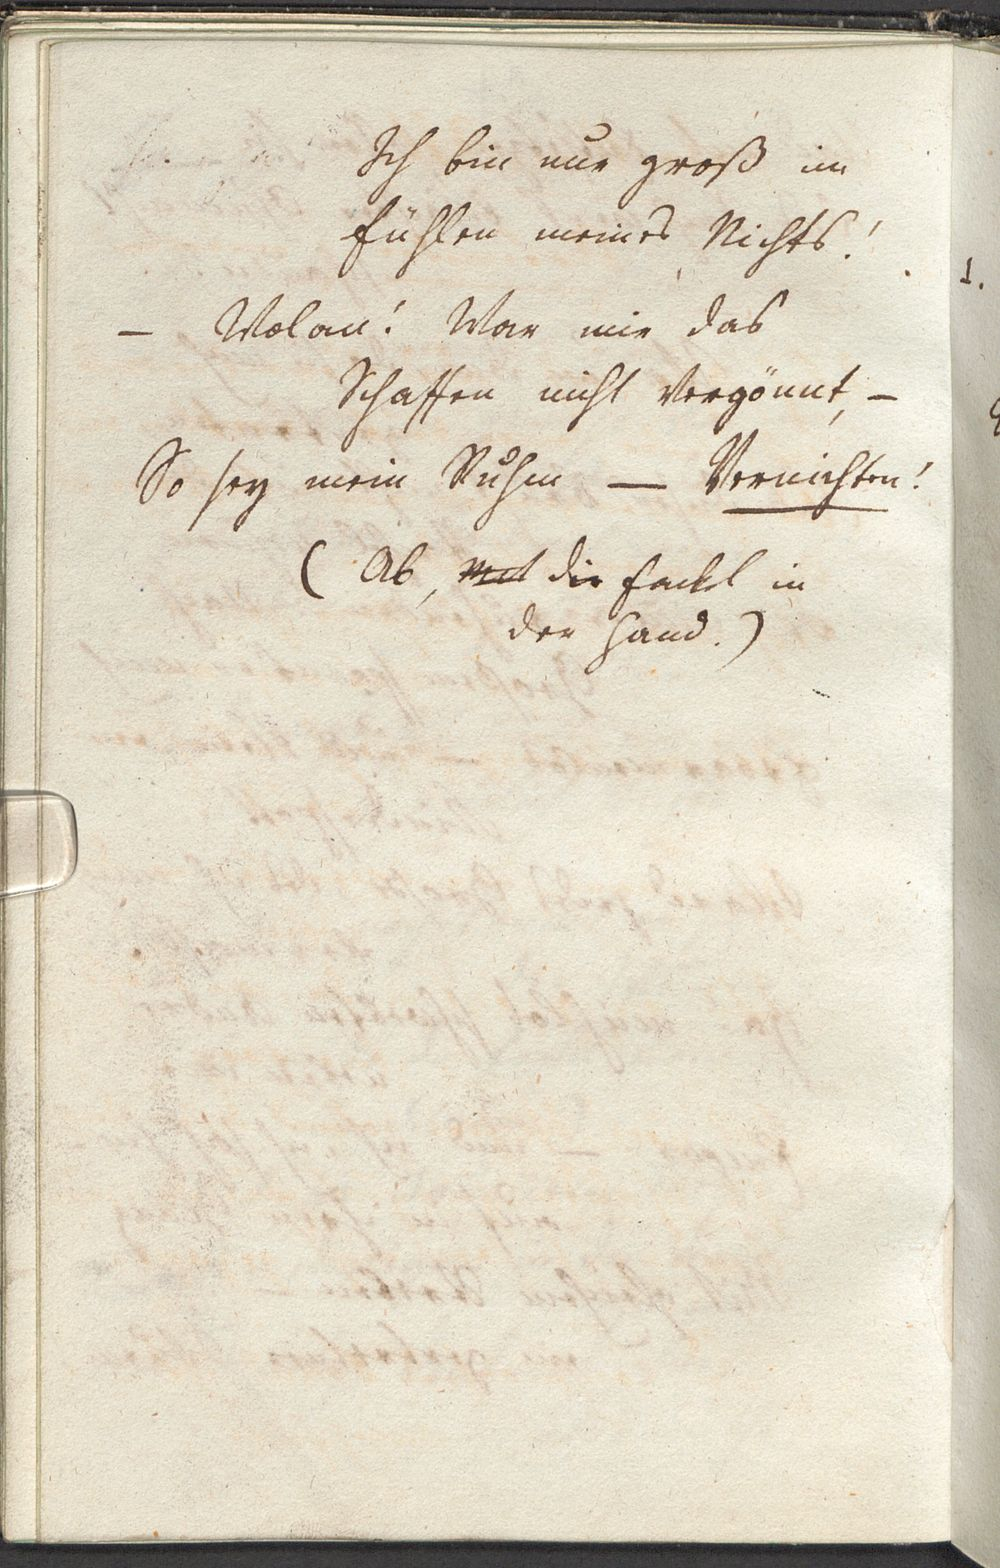 Ich bin nur groß im
Fühlen meines Nichts!
– Wolan! War mir das
Schaffen nicht vergönnt, –
So sey mein Ruhm — Vernichten!
(Ab, mit die Fackel in
der Hand.)
1.